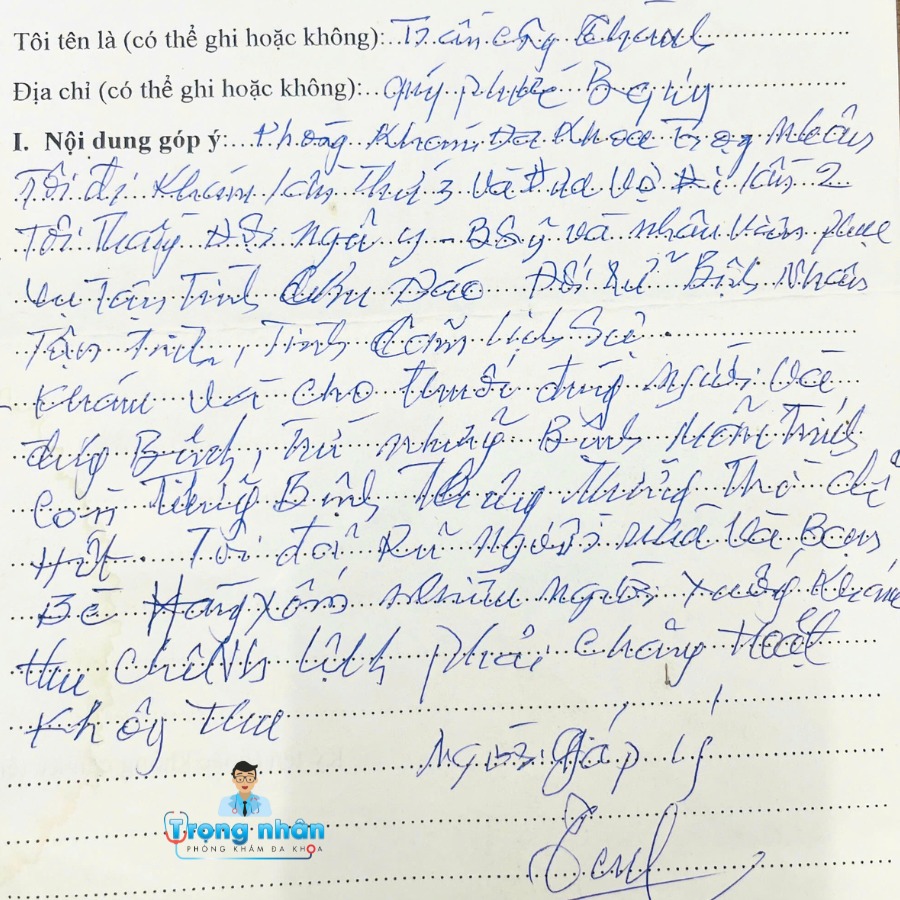 Tôi tên là (có thể ghi hoặc không): Trần Công Thành
Địa chỉ (có thể ghi hoặc không): quý
I. Nội dung góp ý: Phòng Khám Đa Khoa Trọng Nhân
Tôi đi Khám lần Thứ 3 và Đưa Vợ Đi lần 2
Tôi Thấy Đội ngũ y - BSỹ và nhân Viên phục
vụ Tận Tình Chu Đáo Đối xử Bệnh Nhân
Tận tình, Tình Cảm lịch Sự.
Khám và cho thuốc đúng người và
đúng Bệnh, Trừ những Bệnh
Còn Bệnh Thông Thường Thì
Hết. Tôi đã Rủ người nhà Và Bạn
Bè Hàng xóm nhiều người xuống Khám
Thu Chênh lệch phải chăng Hoặc
Không Thu
Người Góp ý
Trọng nhân
PHÒNG KHÁM ĐA KHOA